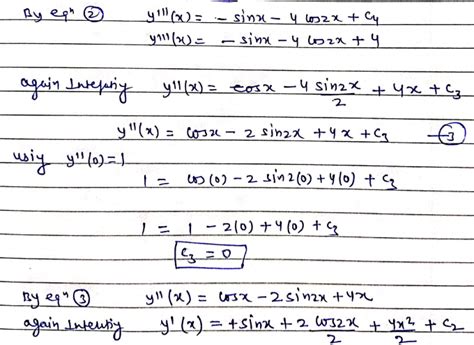 By eqⁿ ② y'''(x) = - sinx - 4 cos2x + C₄
y'''(x) = - sinx - 4 cos2x + 4
again Integrating y''(x) = cosx - 4 sin2x/2 + 4x + C₃
y''(x) = cosx - 2 sin2x + 4x + C₃ —③
using y''(0) = 1
1 = cos(0) - 2 sin2(0) + 4(0) + C₃
1 = 1 - 2(0) + 4(0) + C₃
C₃ = 0
By eqⁿ ③ y''(x) = cosx - 2 sin2x + 4x
again Integrating y'(x) = + sinx + 2 cos2x/2 + 4x²/2 + C₂